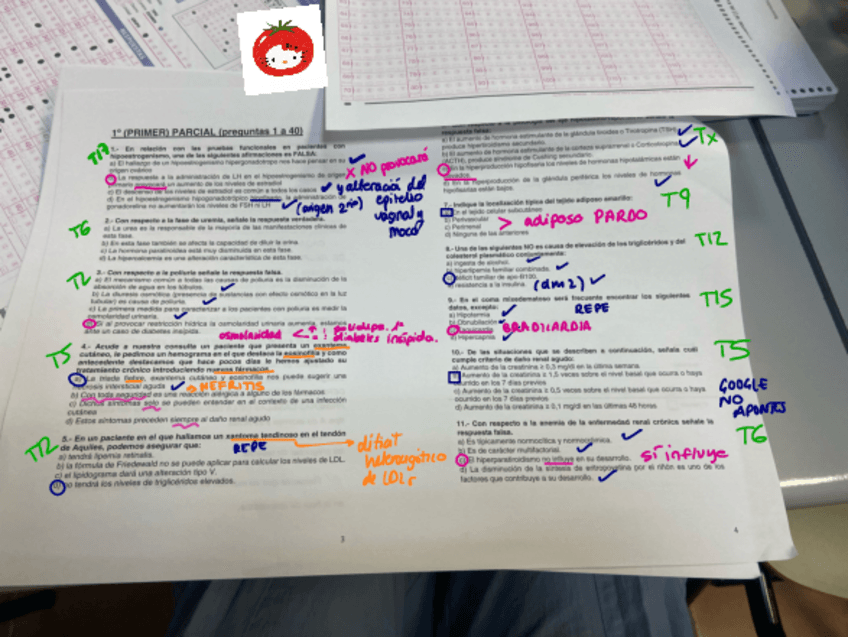 1º (PRIMER) PARCIAL (preguntas 1 a 40)
1.- En relación con las pruebas funcionales en pacientes con
hipoestrogenismo, una de las siguientes afirmaciones es FALSA:
a) El hallazgo de un hipoestrogenismo hipergonadotropo nos hace pensar en su
origen ovárico
La respuesta a la administración de LH en el hipoestrogenismo de origen
un aumento de los niveles de estradiol
c) El descenso de los niveles de estradiol es común a todos los casos
d) En el hipoestrogenismo hipogonadotrópico la administración de
gonadorelina no aumentarán los niveles de FSH ni LH
x NO provocará
y alteración del
epitelio
vaginal y
moco
(origen 2rio)
T6
2.- Con respecto a la fase de uremia, señale la respuesta verdadera.
a) La urea es la responsable de la mayoría de las manifestaciones clínicas de
esta fase.
b) En esta fase también se afecta la capacidad de diluir la orina.
c) La hormona paratiroidea está muy disminuida en esta fase.
d) La hipercalcemia es una alteración característica de esta fase.
T2
3.- Con respecto a la poliuria señale la respuesta falsa.
a) El mecanismo común a todas las causas de poliuria es la disminución de la
absorción de agua en los túbulos.
b) La diuresis osmótica (presencia de sustancias con efecto osmótico en la luz
tubular) es causa de poliuria.
c) La primera medida para caracterizar a los pacientes con poliuria es medir la
osmolaridad urinaria.
Si al provocar restricción hídrica la osmolaridad urinaria aumenta, estamos
ante un caso de diabetes insípida.
osmolaridad
diabetes insípida.
T5
4.- Acude a nuestra consulta un paciente que presenta un exantema
cutáneo, le pedimos un hemograma en el que destaca la eosinofilia y como
antecedente destacamos que hace pocos días le hemos ajustado su
tratamiento crónico introduciendo nuevos fármacos.
a) La triada fiebre, exantema cutáneo y eosinofilia nos puede sugerir una
intersticial aguda
NEFRITIS
b) Con toda seguridad es una reacción alérgica a alguno de los fármacos
c) Dichos síntomas solo se pueden entender en el contexto de una infección
cutánea
d) Estos síntomas preceden siempre al daño renal agudo
T12
5.- En un paciente en el que hallamos un xantoma tendinoso en el tendón
de Aquiles, podemos asegurar que:
REPE
a) tendrá lipemia retinalis.
b) la fórmula de Friedewald no se puede aplicar para calcular los niveles de LDL.
c) el lipidograma dará una alteración tipo V.
d) no tendrá los niveles de triglicéridos elevados.
de LDLr
3
respuesta falsa:
a) El aumento de hormona estimulante de la glándula tiroides o Tirotropina (TSH)
produce hipertiroidismo secundario.
b) El aumento de hormona estimulante de la corteza suprarrenal o Corticotropina
(ACTH), produce síndrome de Cushing secundario.
En la hiperfunción hipofisaria los niveles de hormonas hipotalámicas están
d) En la hiperproducción de la glándula periférica los niveles de hormonas
hipofisarias están bajos.
Tx
T9
7.- Indique la localización típica del tejido adiposo amarillo:
En el tejido celular subcutáneo
b) Perivascular
c) Perirrenal
d) Ninguna de las anteriores
> adiposo PARDO
T12
8.- Una de las siguientes NO es causa de elevación de los triglicéridos y del
colesterol plasmático conjuntamente:
a) ingesta de alcohol.
b) hiperlipemia familiar combinada.
c) Déficit familiar de apo-B100.
d) resistencia a la insulina.
(dm2)
T15
9.- En el coma mixedematoso será frecuente encontrar los siguientes
datos, excepto:
REPE
a) Hipotermia
b) Obnubilación
BRADICARDIA
d) Hipercapnia
T5
10.- De las situaciones que se describen a continuación, señale cuál
cumple criterio de daño renal agudo:
a) Aumento de la creatinina ≥ 0,3 mg/dl en la última semana.
b) Aumento de la creatinina ≥ 1,5 veces sobre el nivel basal que ocurra o haya
ocurrido en los 7 días previos
c) Aumento de la creatinina ≥ 0,5 veces sobre el nivel basal que ocurra o haya
ocurrido en los 7 días previos
d) Aumento de la creatinina ≥ 0,1 mg/dl en las últimas 48 horas.
GOOGLE
NO
APUNTES
T6
11.- Con respecto a la anemia de la enfermedad renal crónica señale la
respuesta falsa.
a) Es típicamente normocítica y normocrómica.
b) Es de carácter multifactorial.
c) El hiperparatiroidismo no influye en su desarrollo.
sí influye
d) La disminución de la síntesis de eritropoyetina por el riñón es uno de los
factores que contribuye a su desarrollo.
4